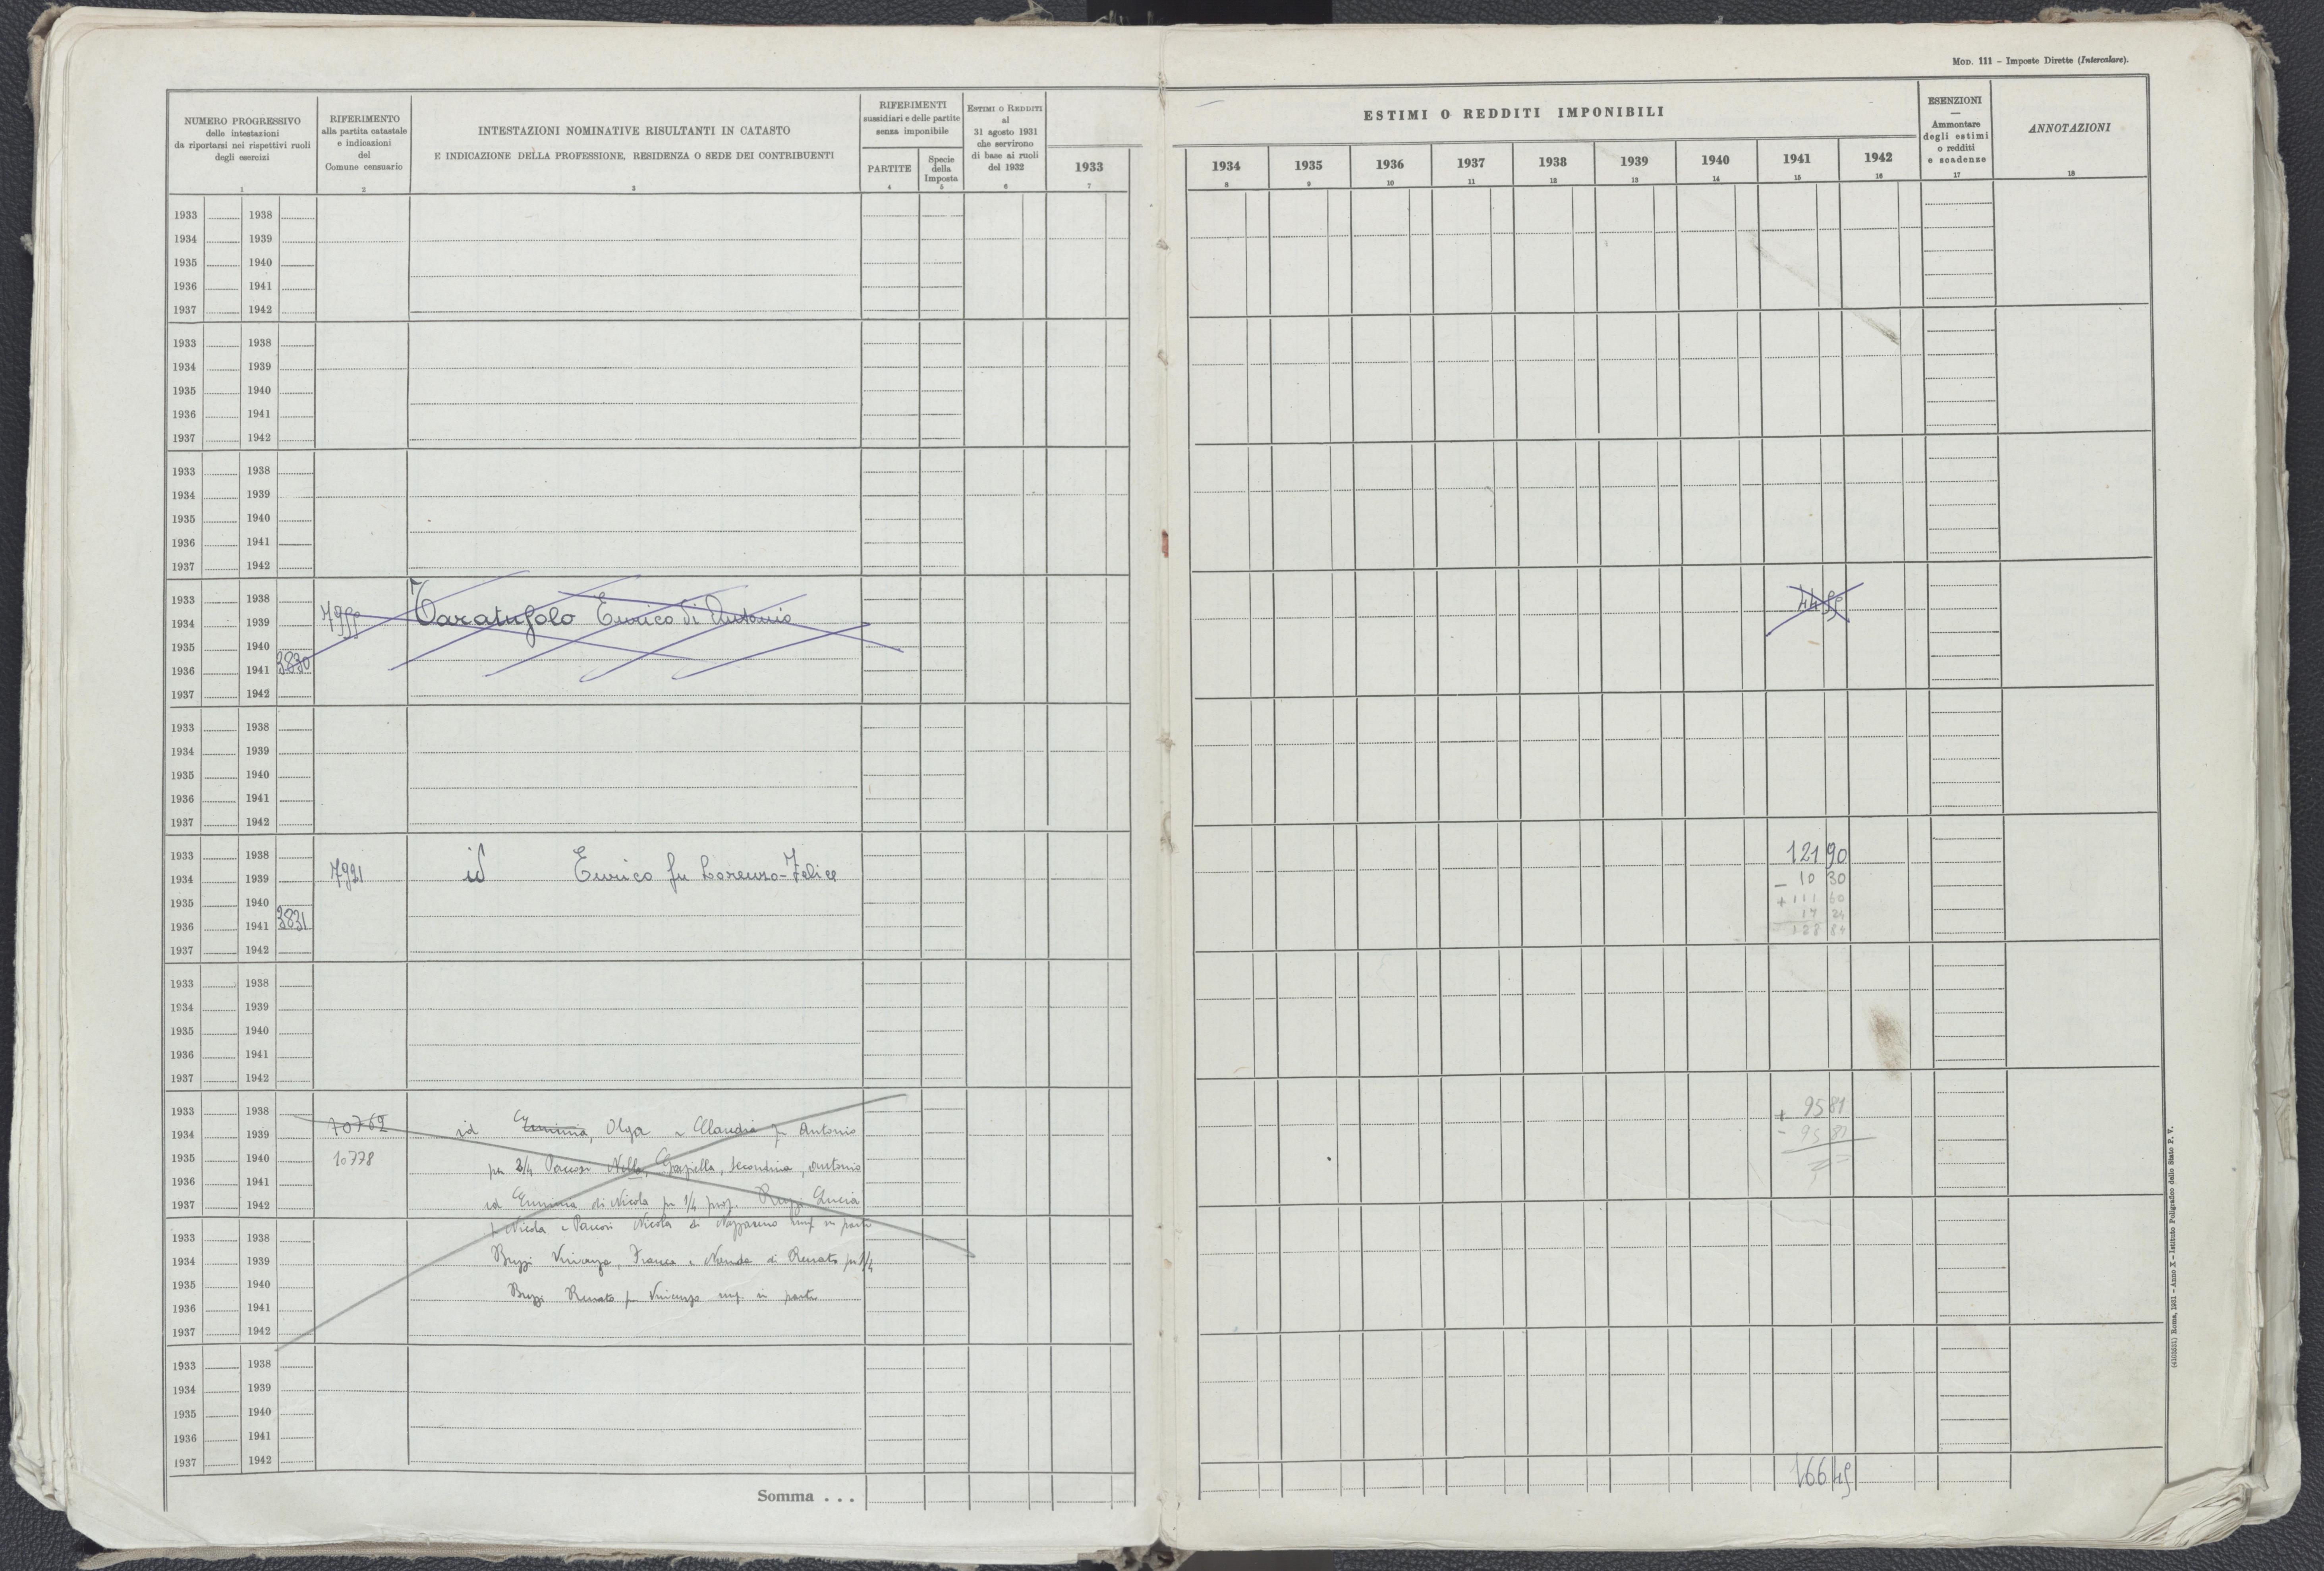 MOD. 111 – Imposte Dirette (Intercalare).
NUMERO PROGRESSIVO
delle intestazioni
da riportarsi nei rispettivi ruoli
degli esercizi
1
RIFERIMENTO
alla partita catastale
e indicazioni
del
Comune censuario
2
INTESTAZIONI NOMINATIVE RISULTANTI IN CATASTO
E INDICAZIONE DELLA PROFESSIONE, RESIDENZA O SEDE DEI CONTRIBUENTI
3
RIFERIMENTI
sussidiari e delle partite
senza imponibile
PARTITE
4
Specie
della
Imposta
5
ESTIMI O REDDITI
al
31 agosto 1931
che servirono
di base ai ruoli
del 1932
6
ESTIMI O REDDITI IMPONIBILI
1933 1934 1935 1936 1937 1938 1939 1940 1941 1942
7 8 9 10 11 12 13 14 15 16
ESENZIONI
—
Ammontare
degli estimi
o redditi
e scadenze
17
ANNOTAZIONI
18
1933 1938
1934 1939
1935 1940
1936 1941
1937 1942
1933 1938
1934 1939
1935 1940
1936 1941
1937 1942
1933 1938
1934 1939
1935 1940
1936 1941
1937 1942
1933 1938
1934 1939 Taratufolo Enrico di Antonio 44 55
1935 1940
1936 1941 3830
1937 1942
1933 1938
1934 1939
1935 1940
1936 1941
1937 1942
1933 1938 121 90
1934 1939 7921 id Enrico fu Lorenzo-Felice – 10 30
1935 1940 + 111 60
1936 1941 3831 17 24
1937 1942 128 84
1933 1938
1934 1939
1935 1940
1936 1941
1937 1942
1933 1938 10762 + 95 81
1934 1939 id Ermina, Olga e Claudia fu Antonio – 95 81
1935 1940 10778 per 2/4 Nella, Secondina, Antonio
1936 1941
1937 1942 ed Ermina di Nicola per 1/4 prop. Lucia
fu Nicola e Nicola di Nazzareno usuf. in parte
1933 1938
1934 1939 Buzzi Vincenzo, Franca e di Renato per 1/4
1935 1940
1936 1941 Buzzi Renato fu Vincenzo usuf. in parte
1937 1942
1933 1938
1934 1939
1935 1940
1936 1941
1937 1942
Somma . . . 166 45
(4103531) Roma, 1931 – Anno X – Istituto Poligrafico dello Stato P. V.